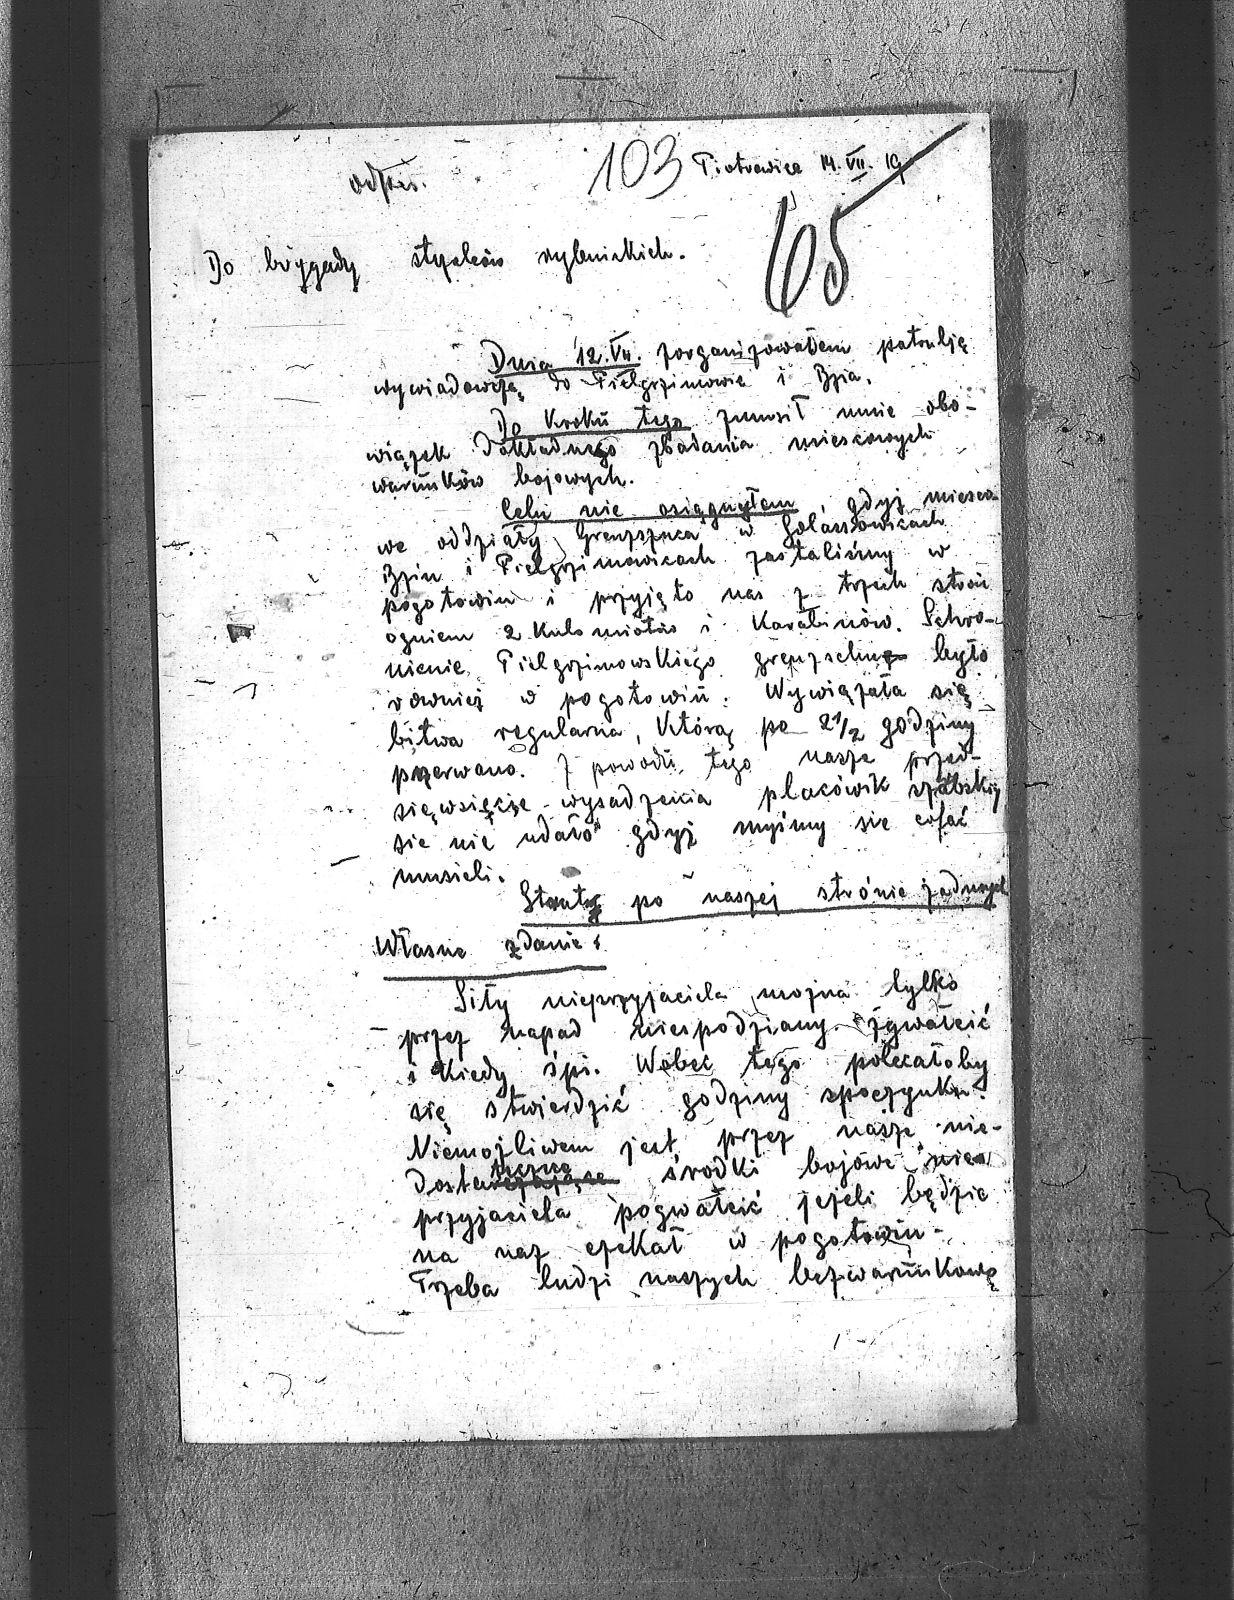 odpis.
103 Piotrowice 14. VII. 19
65
Do brygady stzelców rybnickich.
Dnia 12. VII. zorganizowałem patrulję
wywiadowczą do Pielgrzimowic i Bzia.
Do kroku tego zmusił mnie obo-
wiązek dokładnego zbadania miescowych
warunków bojowych.
Celu nie osiągnąłem, gdyż miesco-
we oddziały Grenzszuca w Golassowicach
Bziu i Pielgrzimowicach zastaliśmy w
pogotowiu i przyjęto nas z trzech stron
ogniem 2 kulomiotów i karabinów. Schro-
nienie Pielgrzimowskiego grenzschuz było
również w pogotowiu. Wywiązała się
bitwa regularna, którą po 2 1/2 godziny
przerwano. Z powodu tego nasze przed-
sięwsięcie wysadzenia placówik
sie nie udało gdyż myśmy sie cofać
musieli.
Straty po naszej strónie żadnych
Własne zdanie:
Siły nieprzyjaciela można tylko
przez napad niespodziany zgwałcić
i kiedy śpi. Wobec tego polecałoby
się stwierdzić godziny spoczynku.
Niemożliwem jest przez nasze nie-
dostateczne środki bojowe nie
przyjaciela pogwałcić jeżeli będzie
na naz czekał w pogotowiu.
Trzeba ludzi naszych bezwarunkowo